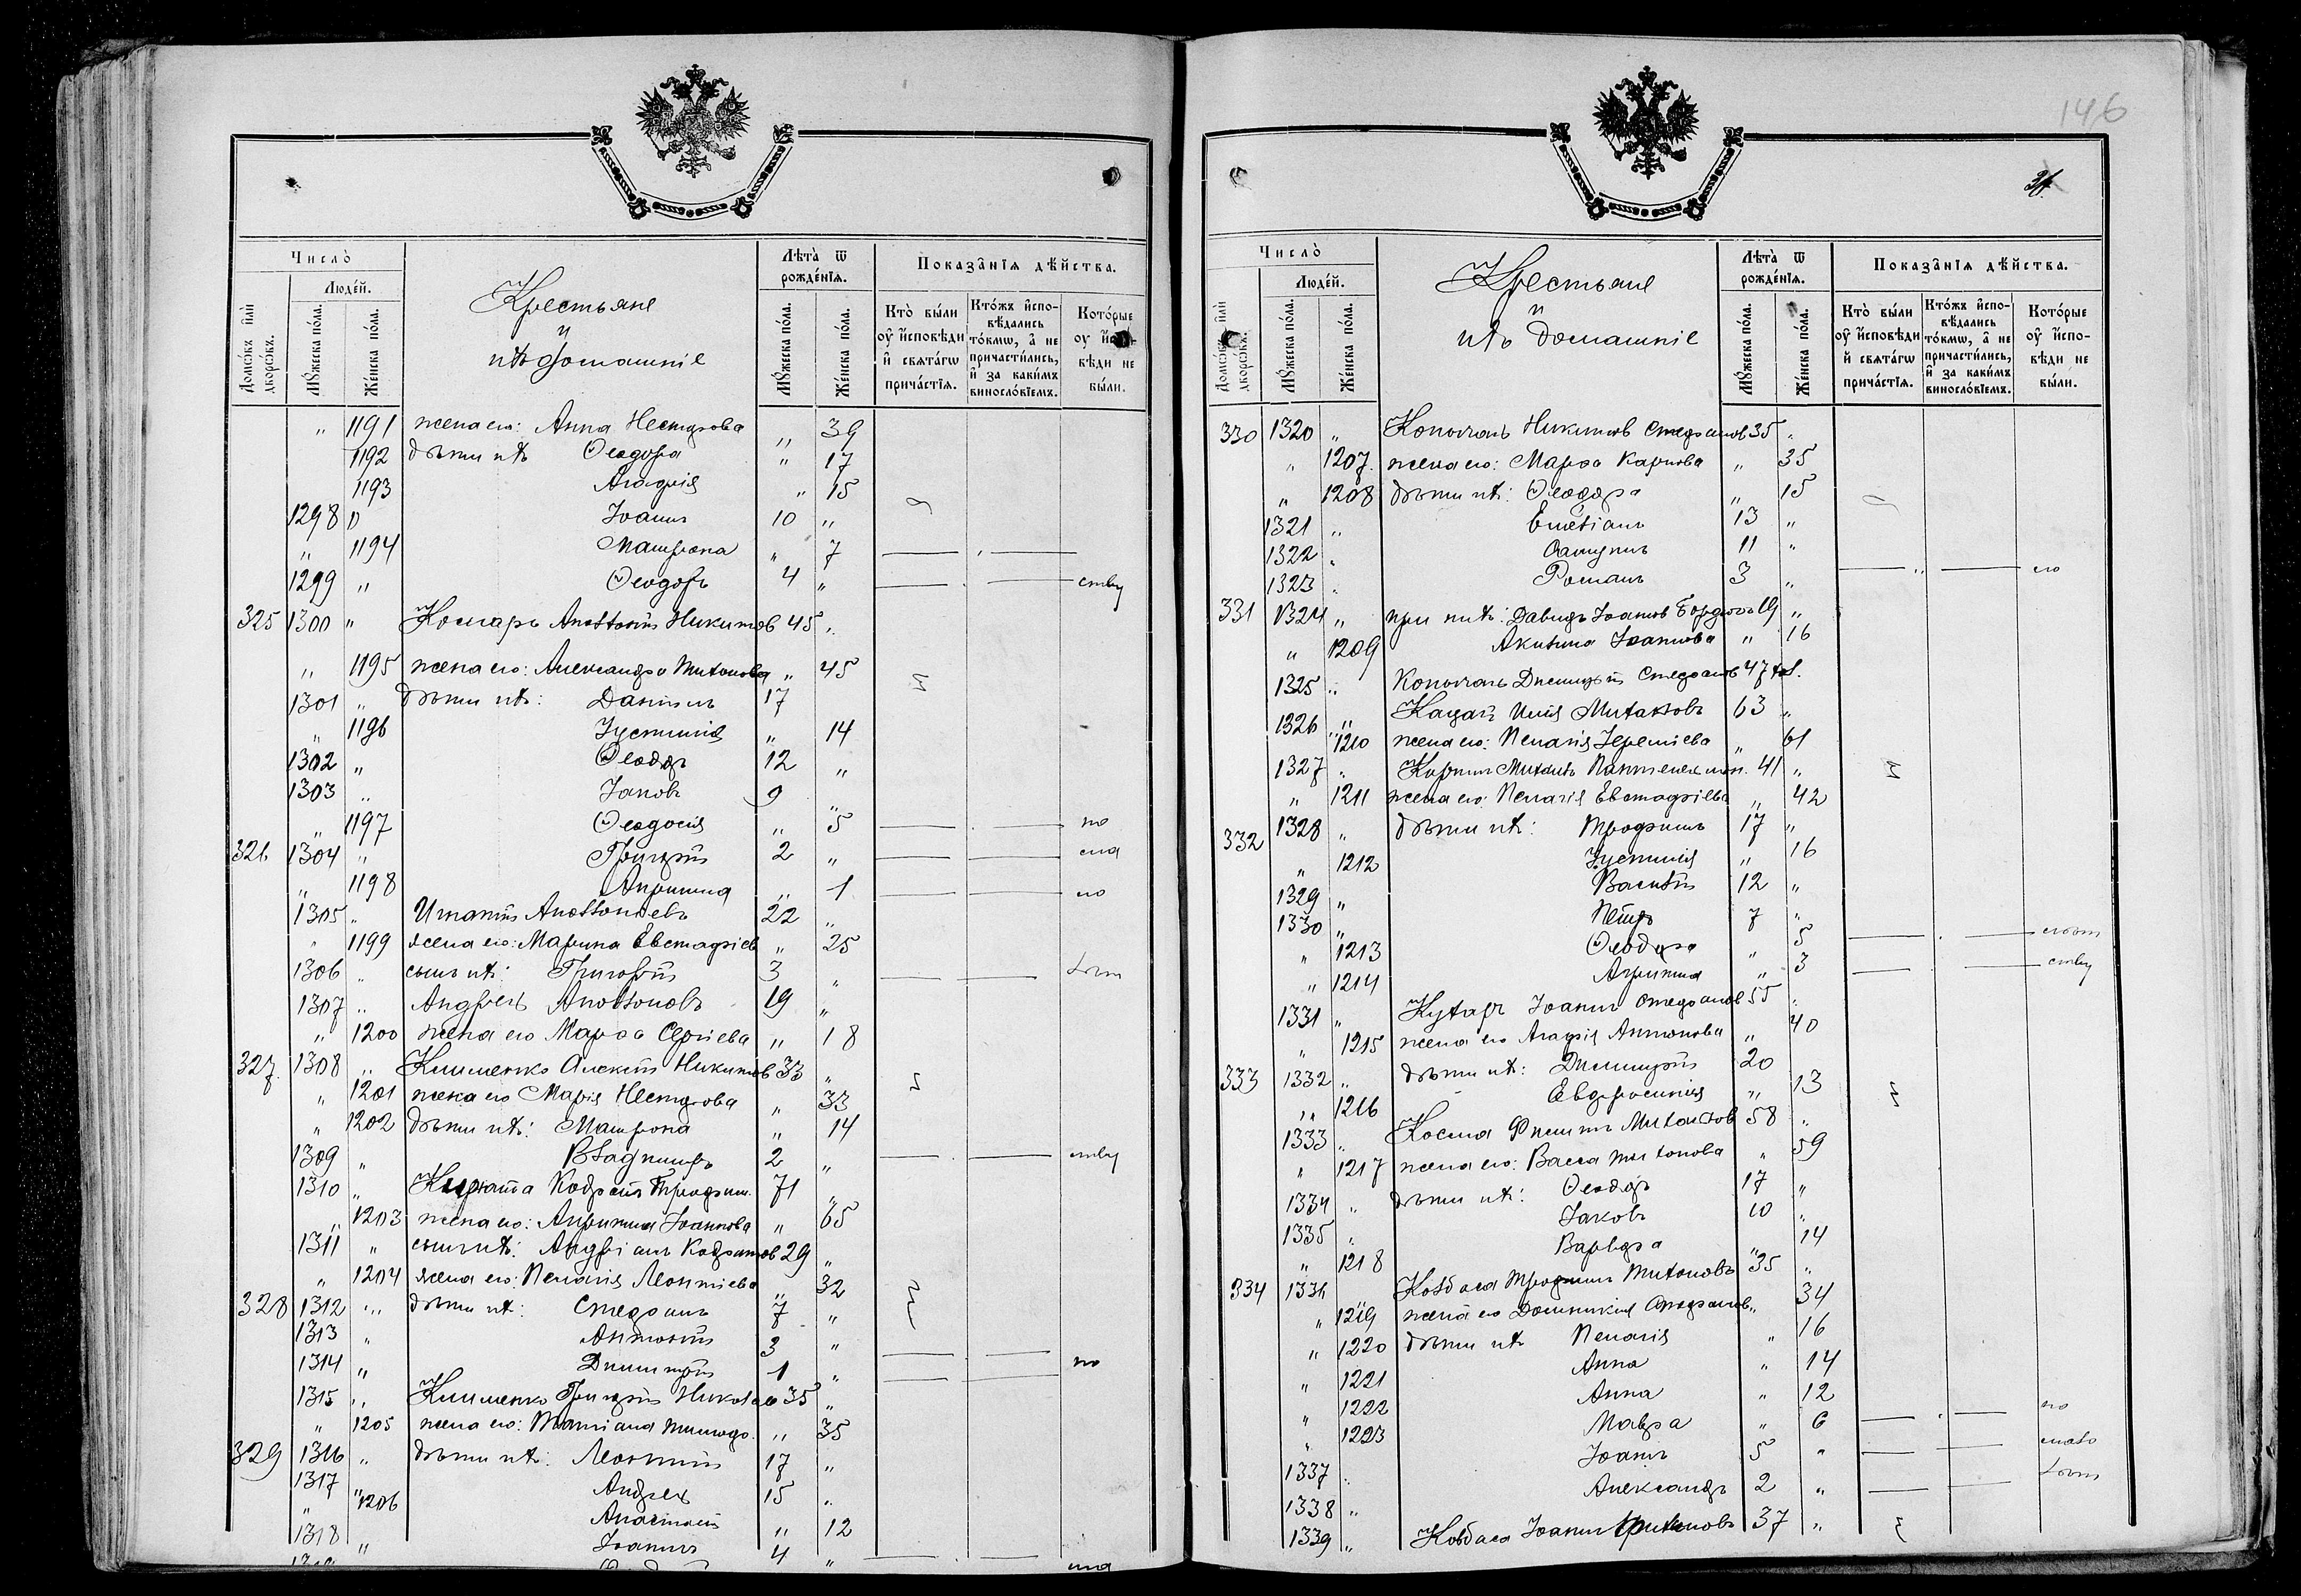 146
31
Число̀
Домо́въ и҆лѝ дворо́въ.
Люде́й.
Мꙋ́жеска по́ла.
Же́нска по́ла.
Крестьяне
и
ихъ домашніе
Лѣта̀ ѿ рожде́нїѧ.
Мꙋ́жеска по́ла.
Же́нска по́ла.
Показа̑нїѧ дѣ́йства.
Кто̀ бы́ли оу҆ и҆сповѣди и҆ свѧта́гѡ прича́стїѧ.
Кто́жъ и҆споведались то́кмѡ, а҆ не причасти́лись, и҆ за каки́мъ винослові́емъ.
Кото́рые оу҆ и҆сповѣди не бы́ли.
" 1191 жена его: Анна Несторова " 39
1192 дѣти ихъ Ѳеодора " 17
1193 Агафія " 15
1298 " Іоаннъ 10 "
" 1194 Матрона " 7
1299 " Ѳеодоръ 4 "
325 1300 " Косларь Никитов 45 "
" 1195 жена его: Александра Тихонова " 45
1301 " дѣти ихъ: Даніилъ 17
" 1196 Іустинія " 14
1302 " Ѳеодоръ 12 "
1303 " Іаковъ 9
" 1197 Ѳеодосія " 5 по
326 1304 " Григорій 2 "
" 1198 Агрипина " 1
1305 " Игнатій 22 "
" 1199 жена его: Марина Евстафіев " 25
1306 " сынъ ихъ: Григорій 3 "
1307 " Андрей 19 "
" 1200 жена его Марѳа Сергіева " 18
327 1308 " Клименко Алексій Никитов 33 "
" 1201 жена его Марія Несторова " 33
" 1202 дѣти ихъ: Матрона " 14
1309 " Владиміръ 2 "
1310 " Кодратъ Трофим. 71
" 1203 жена его: Агрипина Іоаннова " 65
1311 " сынъ ихъ: Андріанъ Кодратов 29 "
" 1204 жена его: Пелагія Леонтіева " 32
328 1312 " дѣти ихъ: Стефанъ 7 "
1313 " Антоній 3 "
1314 " Димитрій 1 " по
1315 " Клименко Григорій Николаев 35 "
" 1205 жена его: Татіана Тимофе. " 35
329 1316 " дѣти ихъ: Леонтій 17 "
1317 Андрей 15 "
" 1206 Анастасія " 12
1318 " Іоаннъ 4 "
Число̀
Домо́въ и҆лѝ дворо́въ.
Люде́й.
Мꙋ́жеска по́ла.
Же́нска по́ла.
Крестьяне
и
ихъ домашніе
Лѣта̀ ѿ рожде́нїѧ.
Мꙋ́жеска по́ла.
Же́нска по́ла.
Показа̑нїѧ дѣ́йства.
Кто̀ бы́ли оу҆ и҆сповѣди и҆ свѧта́гѡ прича́стїѧ.
Кто́жъ и҆споведались то́кмѡ, а҆ не причасти́лись, и҆ за каки́мъ винослові́емъ.
Кото́рые оу҆ и҆сповѣди не бы́ли.
330 1320 " Никитов Стефанов 35 "
" 1207 жена его: Марѳа Карпова " 35
" 1208 дѣти ихъ: Ѳеодора " 15
1321 " Емеліанъ 13 "
1322 " 11 "
1323 " Романъ 3 "
331 1324 " при нихъ: Давидъ Іоаннов 19 "
" 1209 Акилина Іоаннова " 16
1325 " Димитрій Стефанов 47
1326 " Кацай Илія Михаиловъ 63 "
" 1210 жена его: Пелагія Іереміева " 61
1327 " Михаилъ Пантелеимон. 41 "
" 1211 жена его: Пелагія Евстафіева " 42
332 1328 " дѣти ихъ: Трофимъ 17 "
" 1212 Іустинія " 16
1329 " Василій 12 "
1330 " Петръ 7 "
" 1213 Ѳеодора " 5
" 1214 Агрипина " 3
1331 " Кухарь Іоаннъ Стефанов 55 "
" 1215 жена его Агафія Антонова " 40
333 1332 " дѣти ихъ: Димитрій 20
" 1216 Евфросинія " 13
1333 " Косма Филиппъ Михаилов 58 "
" 1217 жена его: Васса Тихонова " 59
1334 " дѣти ихъ: Ѳеодоръ 17 "
1335 " Іаковъ 10 "
" 1218 Варвара " 14
334 1336 Ковбаса Трофимъ Тихоновъ 35 "
" 1219 жена его Домникія " 34
" 1220 дѣти ихъ Пелагія " 16
" 1221 Анна " 14
" 1222 Анна " 12
" 1223 Мавра " 6 по
1337 " Іоаннъ 5 "
1338 " Александръ 2 "
1339 " Ковбаса Іоаннъ 37 "